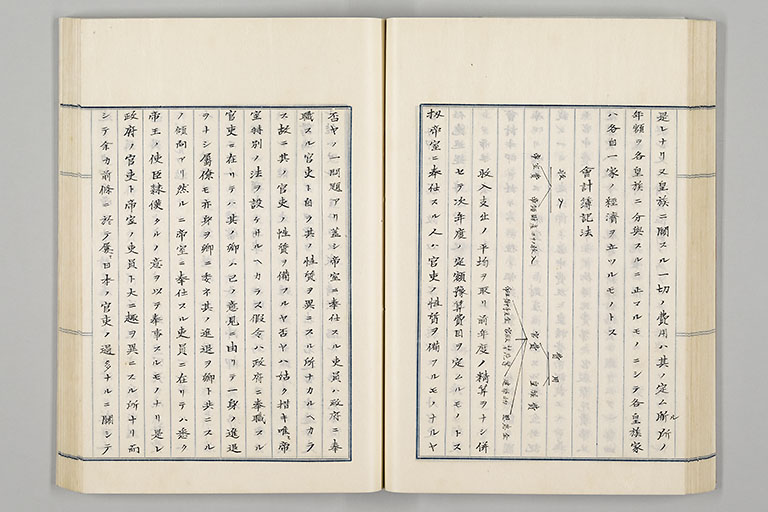 是レナリ又皇族ニ關スル一切ノ費用ハ其ノ定ム所ノ
ル
年額ヲ各皇族ニ分與スルニ止マルモノニシテ各皇族家
ハ各自一家ノ經濟ヲ立ツルモノトス
會計簿記法
收入
帝室費
費用
官費
皇族費
恩賜金
收入支出ノ平均ヲ取リ前年度ノ精算ヲナシ併
セテ次年度ノ定額豫算費目ヲ定ムルモノトス
扨帝室ニ奉仕スル人ハ官吏ノ性質ヲ備フルモノナルヤ
否ヤノ一問題アリ蓋シ帝室ニ奉仕スル吏員ハ政府ニ奉
職スル官吏ト自ラ其ノ性質ヲ異ニスル所ナカルヘカラ
ス故ニ其ノ官吏ノ性質ヲ備フルヤ否ヤハ姑ク措キ唯帝
室特別ノ法ヲ設ケサルヘカラス假令ハ政府ニ奉職スル
官吏ニ在リテハ其ノ卿ハ己ノ意見ニ由リテ一身ノ進退
ヲナシ屬僚モ亦身ヲ卿ニ委ネ其ノ進退ヲ卿ト共ニスル
ノ傾向アリ然ルニ帝室ニ奉仕スル吏員ニ在リテハ悉ク
帝王ノ使臣隷僕タルノ意ヲ以テ奉事スルモノナリ是レ
政府ノ官吏ト帝室ノ吏員ト大ニ趣ヲ異ニスル所ナリ而
シテ余カ前條ニ於テ屢日本ノ官吏ノ過多ナルニ關シテ